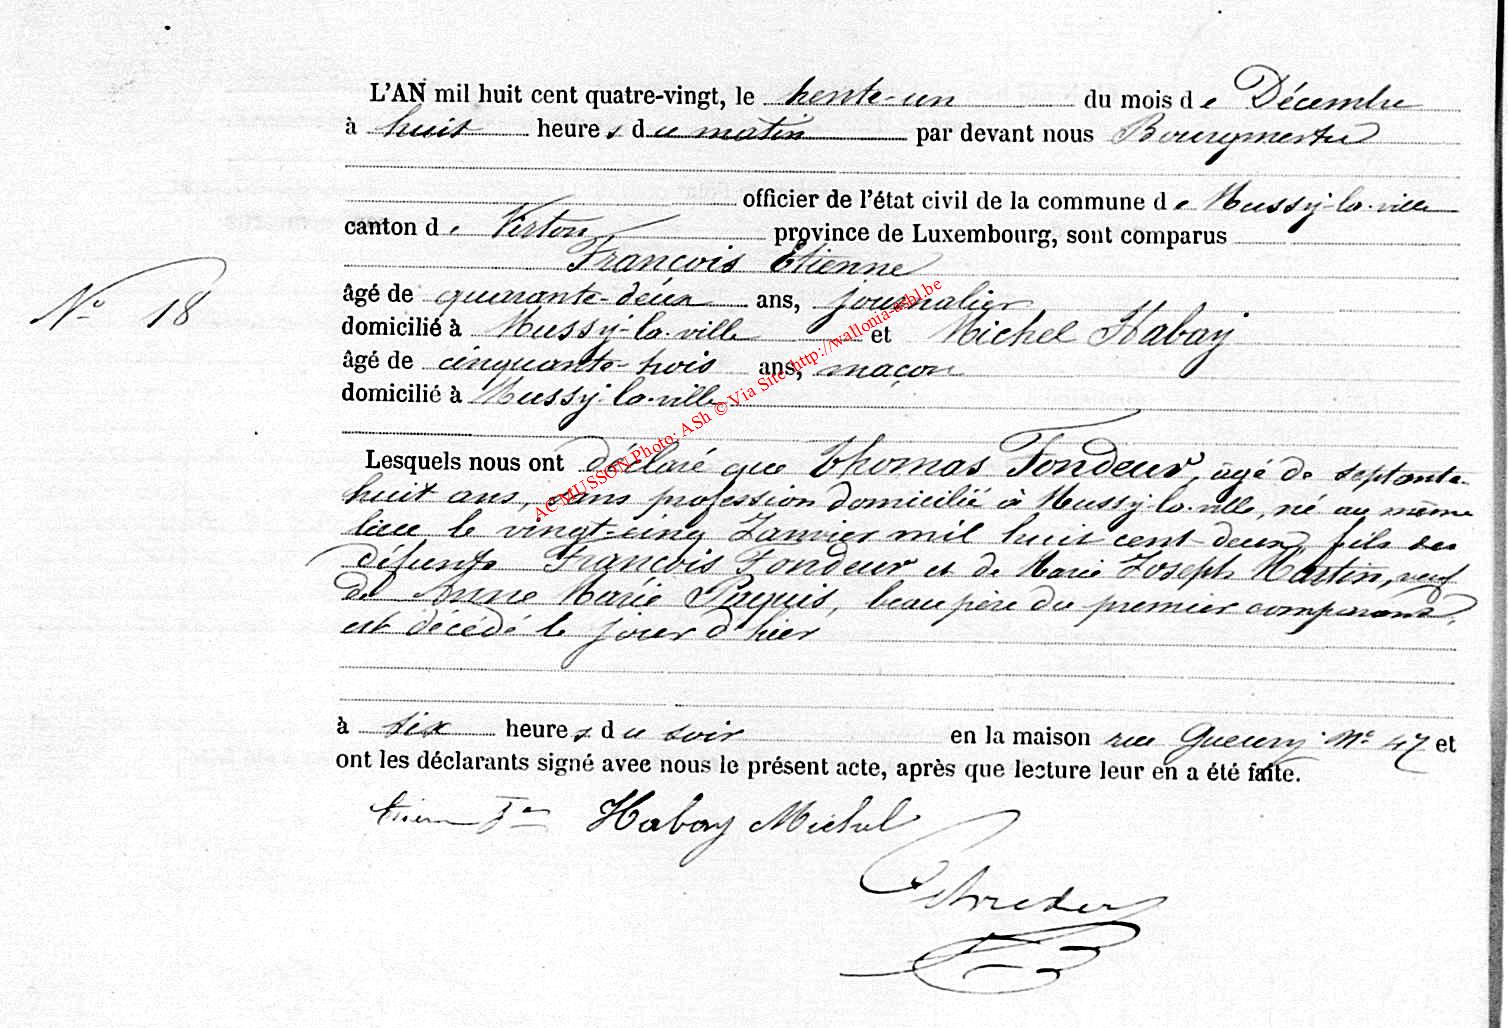 L'AN mil huit cent quatre-vingt, le trente-un du mois de Décembre
à huit heures du matin par devant nous Bourgmestre
officier de l'état civil de la commune de Mussy-la-ville
canton de Virton province de Luxembourg, sont comparus
François Etienne
N° 18
âgé de quarante-deux ans, journalier
domicilié à Mussy-la-ville et Michel Habay
âgé de cinquante-trois ans, maçon
domicilié à Mussy-la-ville
AC MUSSON Photo: ASh © Via Site http://wallonia-ashl.be
Lesquels nous ont déclaré que Thomas Fondeur, agé de septante-
huit ans, sans profession domicilié à Mussy-la-ville, né au même
lieu le vingt-cinq Janvier mil huit cent deux, fils des
défunts François Fondeur et de Marie Joseph Martin, veuf
de Anne Marie Paquis, beau père du premier comparant,
est décédé le jour d'hier
à six heures du soir en la maison rue N° 47 et
ont les déclarants signé avec nous le présent acte, après que lecture leur en a été faite.
Habay Michel